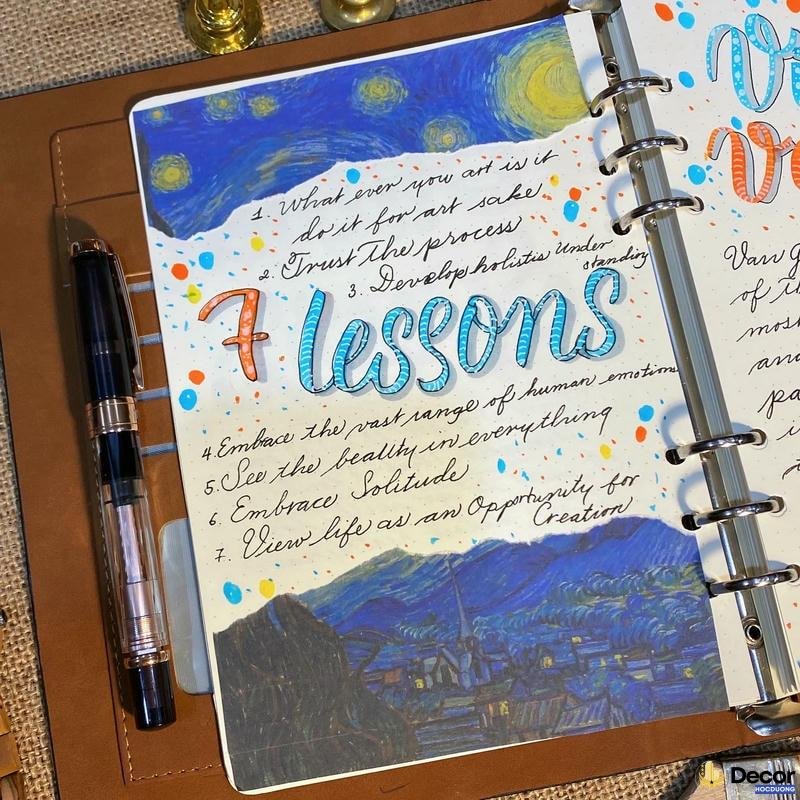 1. What ever you art is it
do it for art sake
2. Trust The process
3. Develop holistis Under
standing
7 lessons
4. Embrace the vast range of human emotions
5. See the beality in everything
6. Embrace Solitude
7. View life as an Opportunity for
Creation
Van
of
and
Decor
HOCDUONG